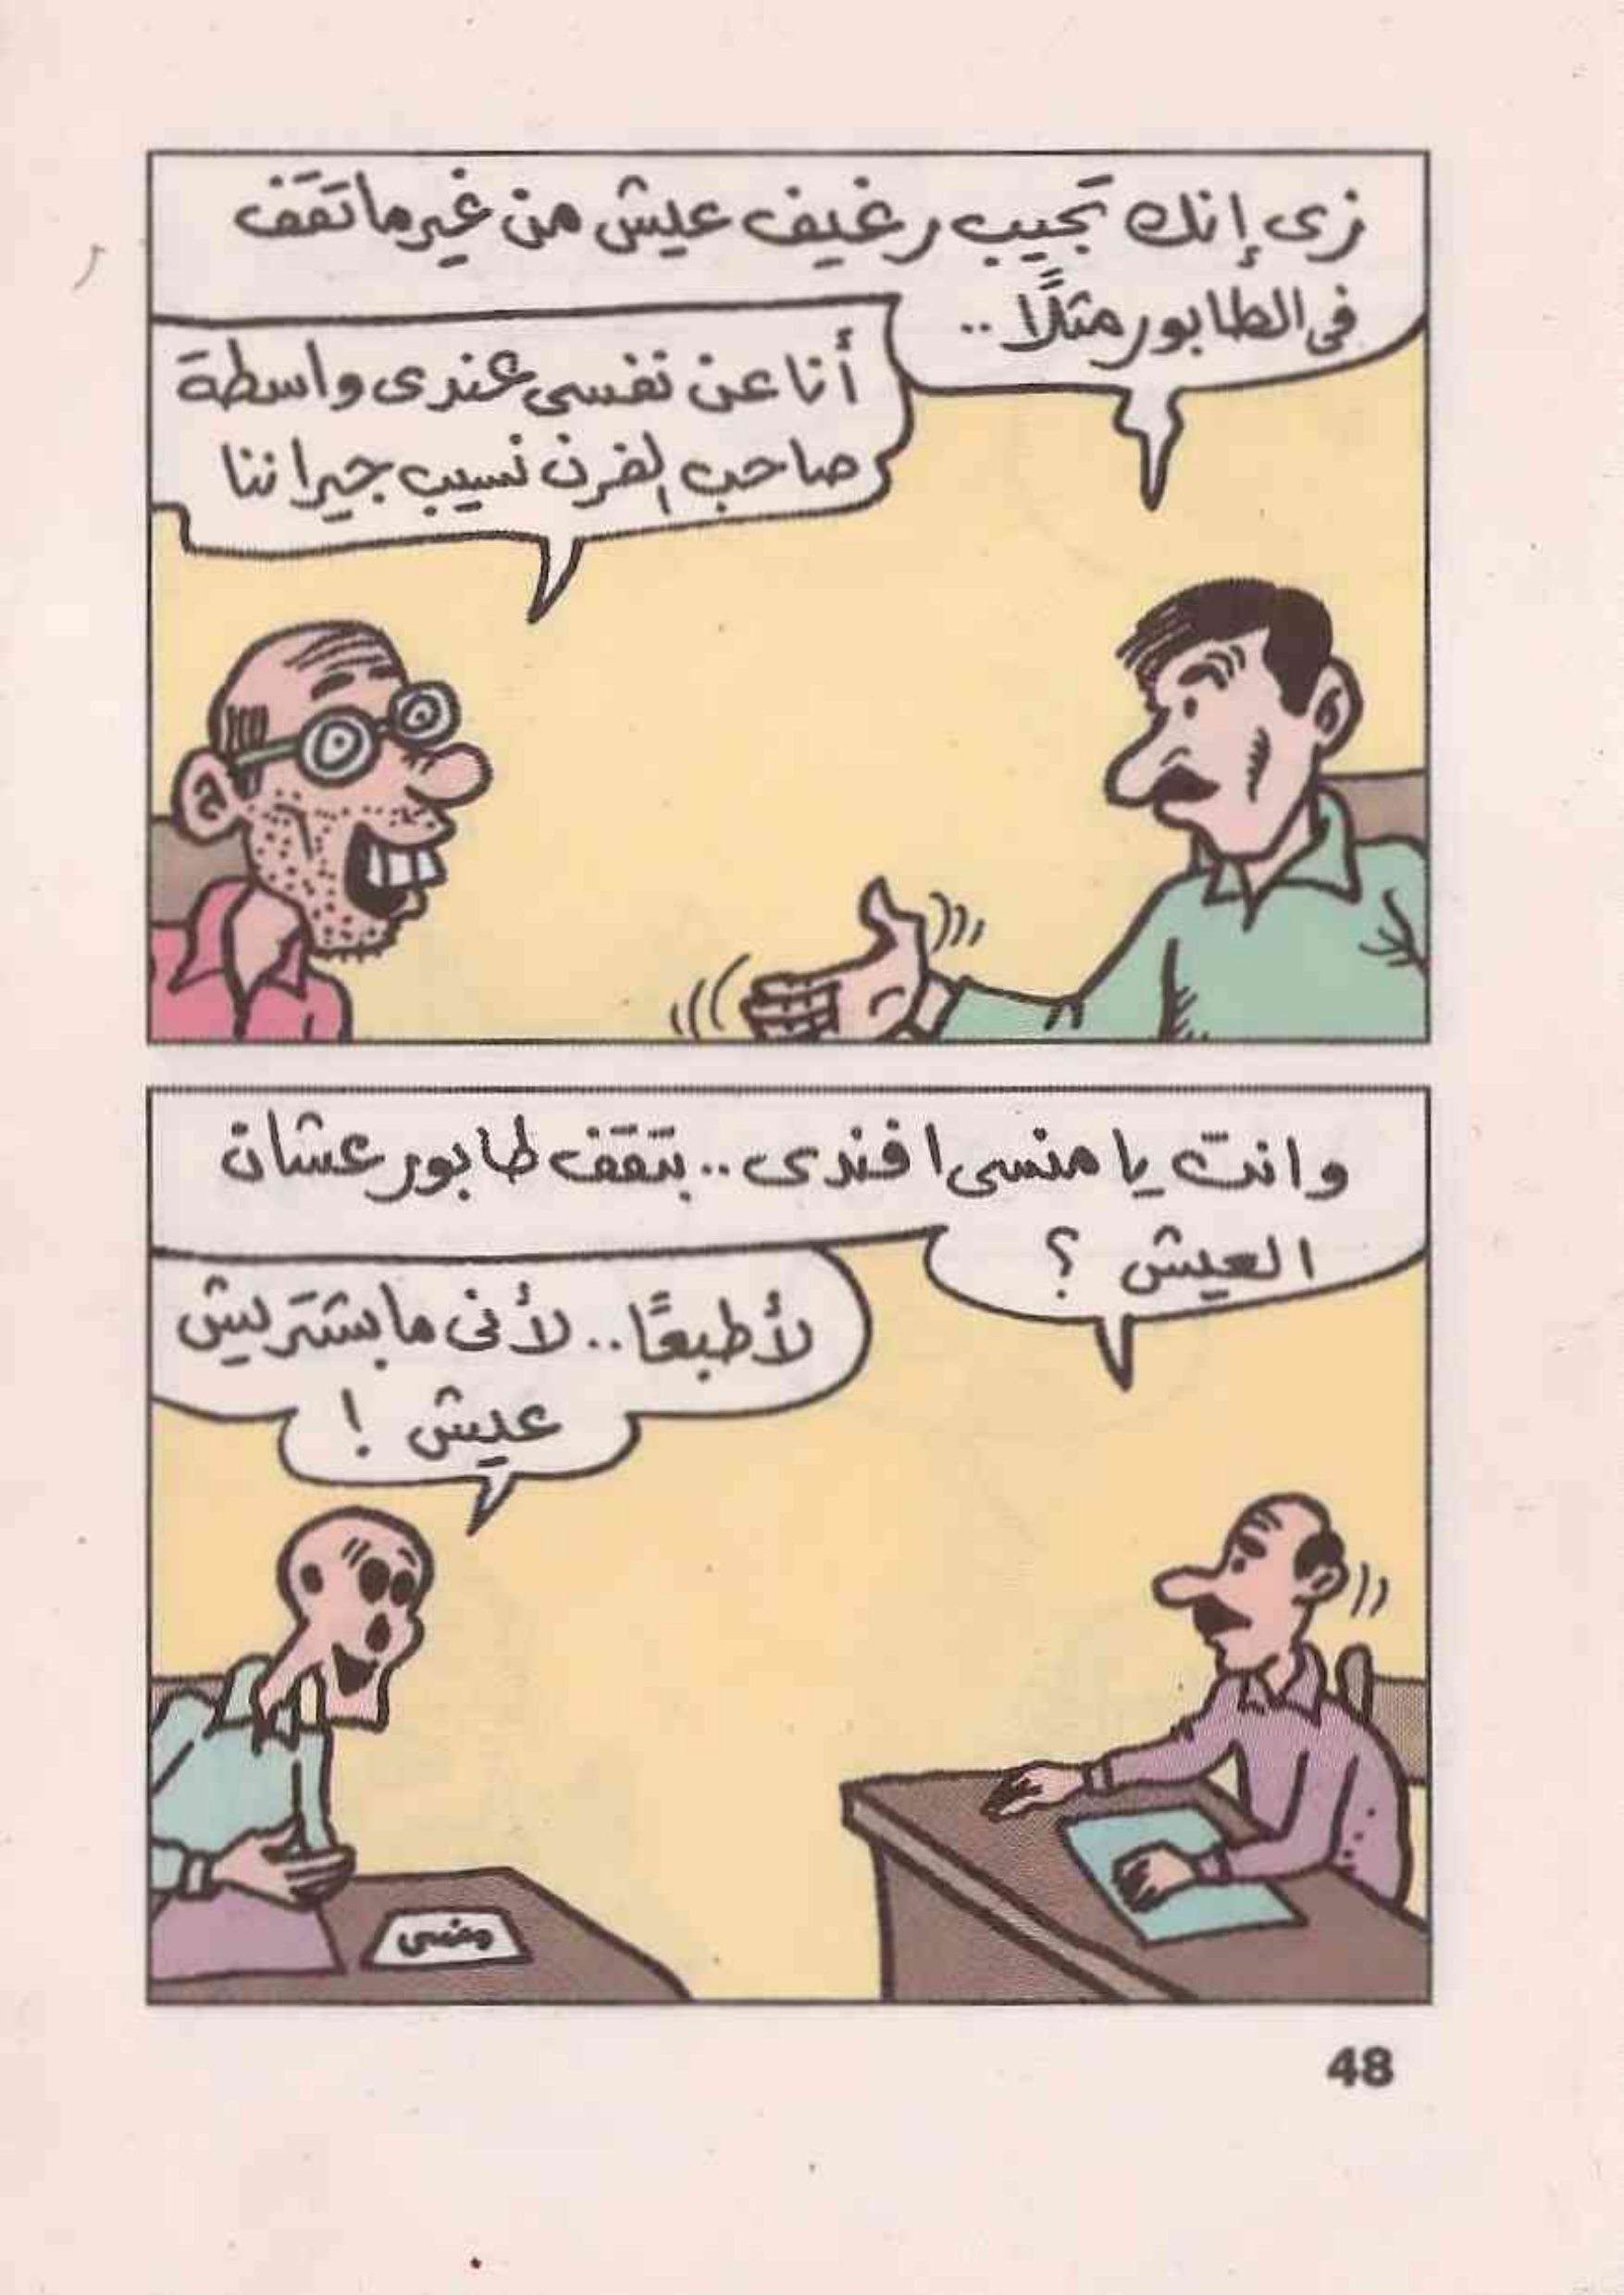 زى إنك تجيب رغيف عيش من غير ما تقف
فى الطابور مثلًا ..
أنا عن نفسى عندى واسطة
صاحب الفرن نسيب جيراننا
وانت يا منسى افندى .. بتقف طابور عشان
العيش ؟
لأ طبعًا .. لأنى ما بشتريش
عيش !
منسى
48